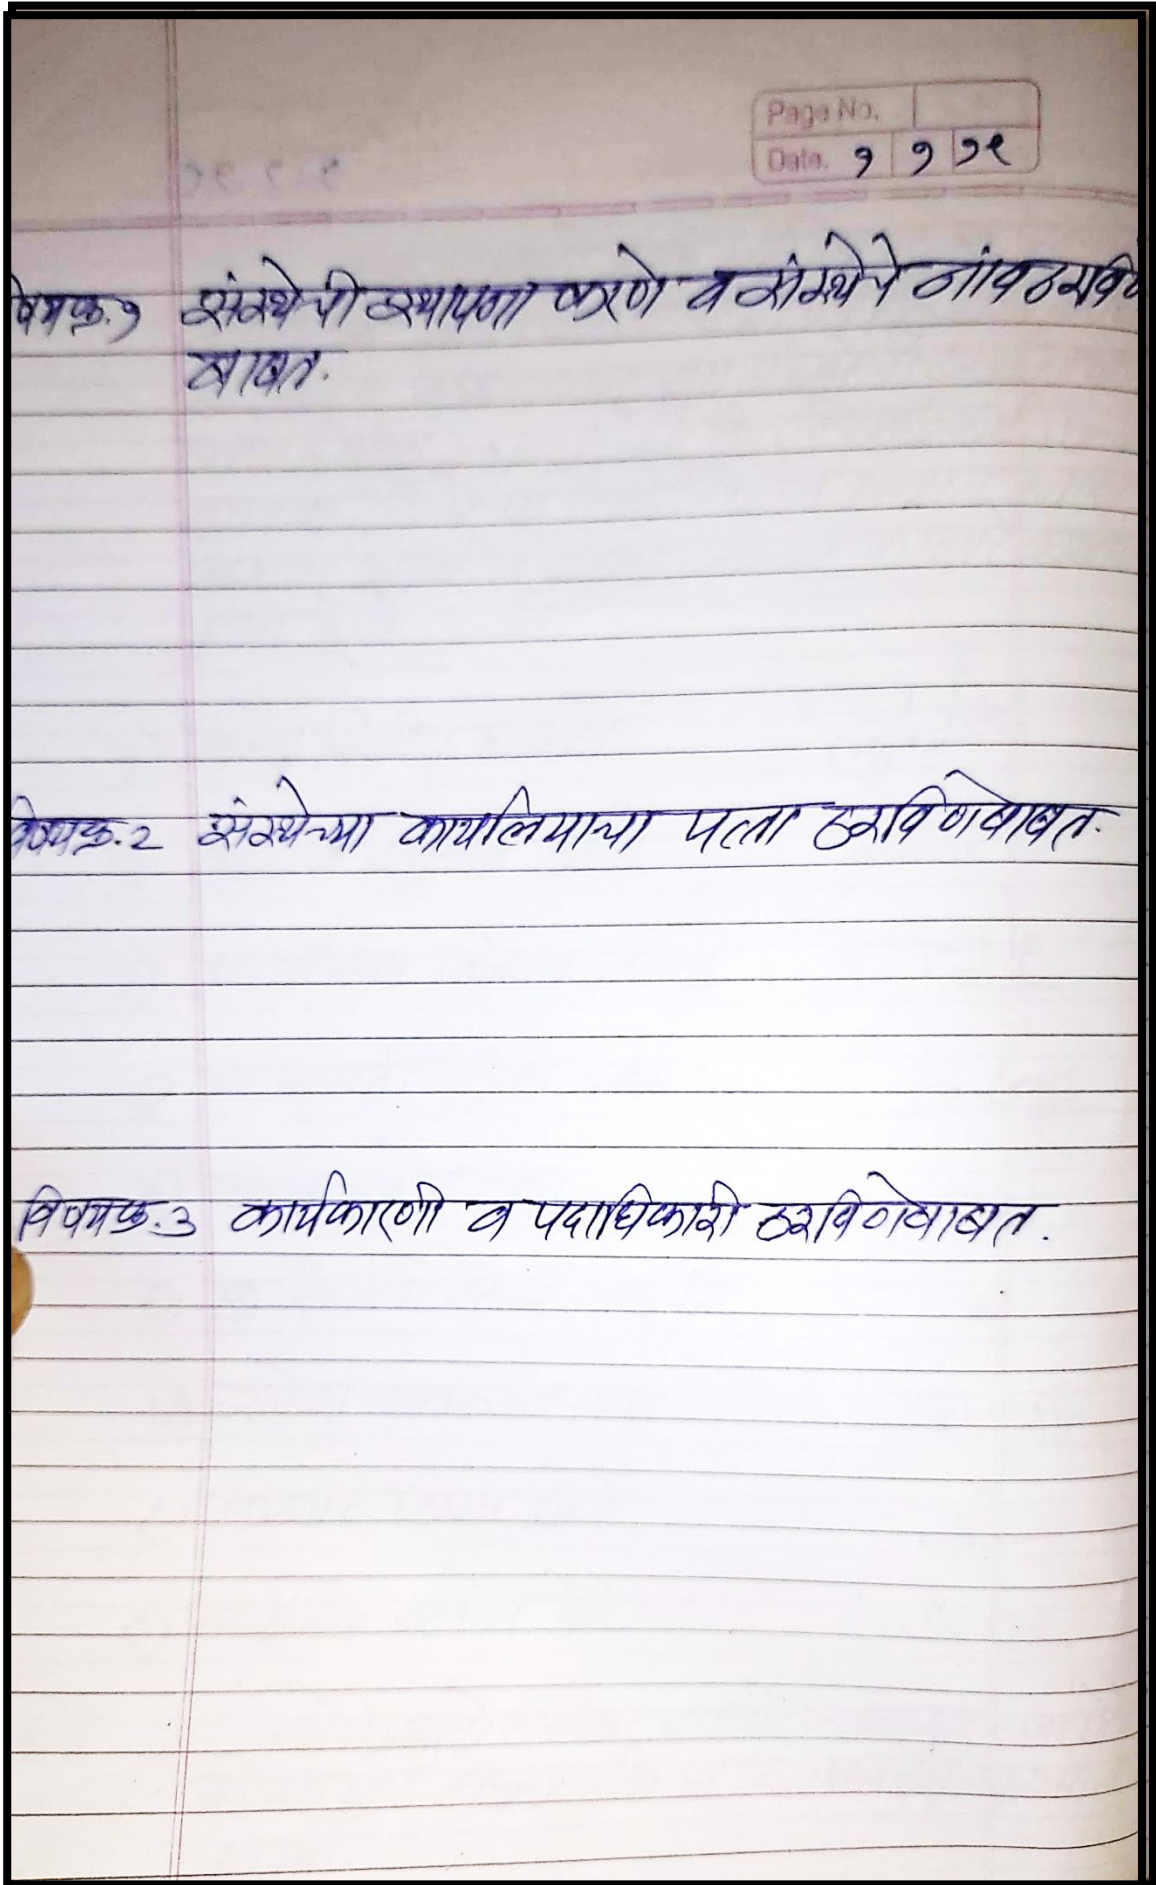 Page No.
Date. १ १ १९
विषय क्र. १ संस्थेची स्थापना करणे व संस्थेचे नांव ठरवि
बाबत.
विषय क्र. 2 संस्थेच्या कार्यालयाचा पत्ता ठरविणेबाबत.
विषय क्र. 3 कार्यकारणी व पदाधिकारी ठरविणेबाबत.